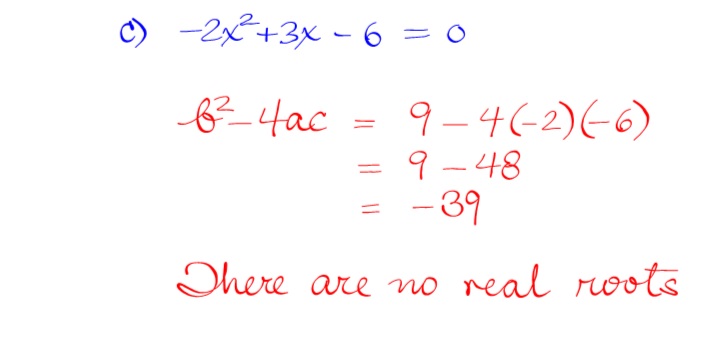 c) -2x²+3x - 6 = 0
b² - 4ac = 9 - 4(-2)(-6)
= 9 - 48
= -39
There are no real roots